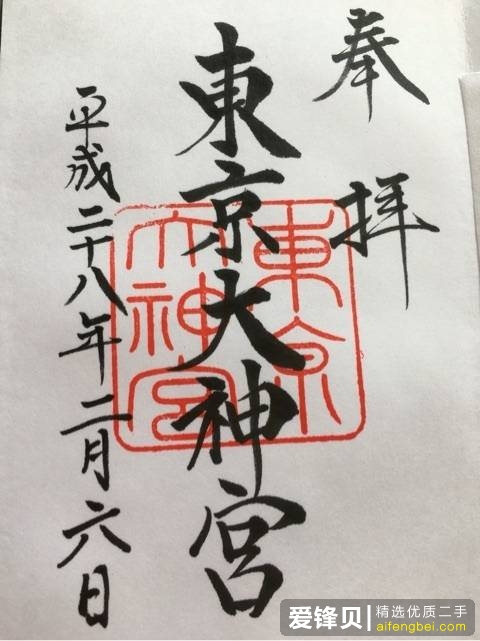 奉拝
東京大神宮
東京大神宮
平成二十八年二月六日
爱锋贝
精选优质二手
aifengbei.com